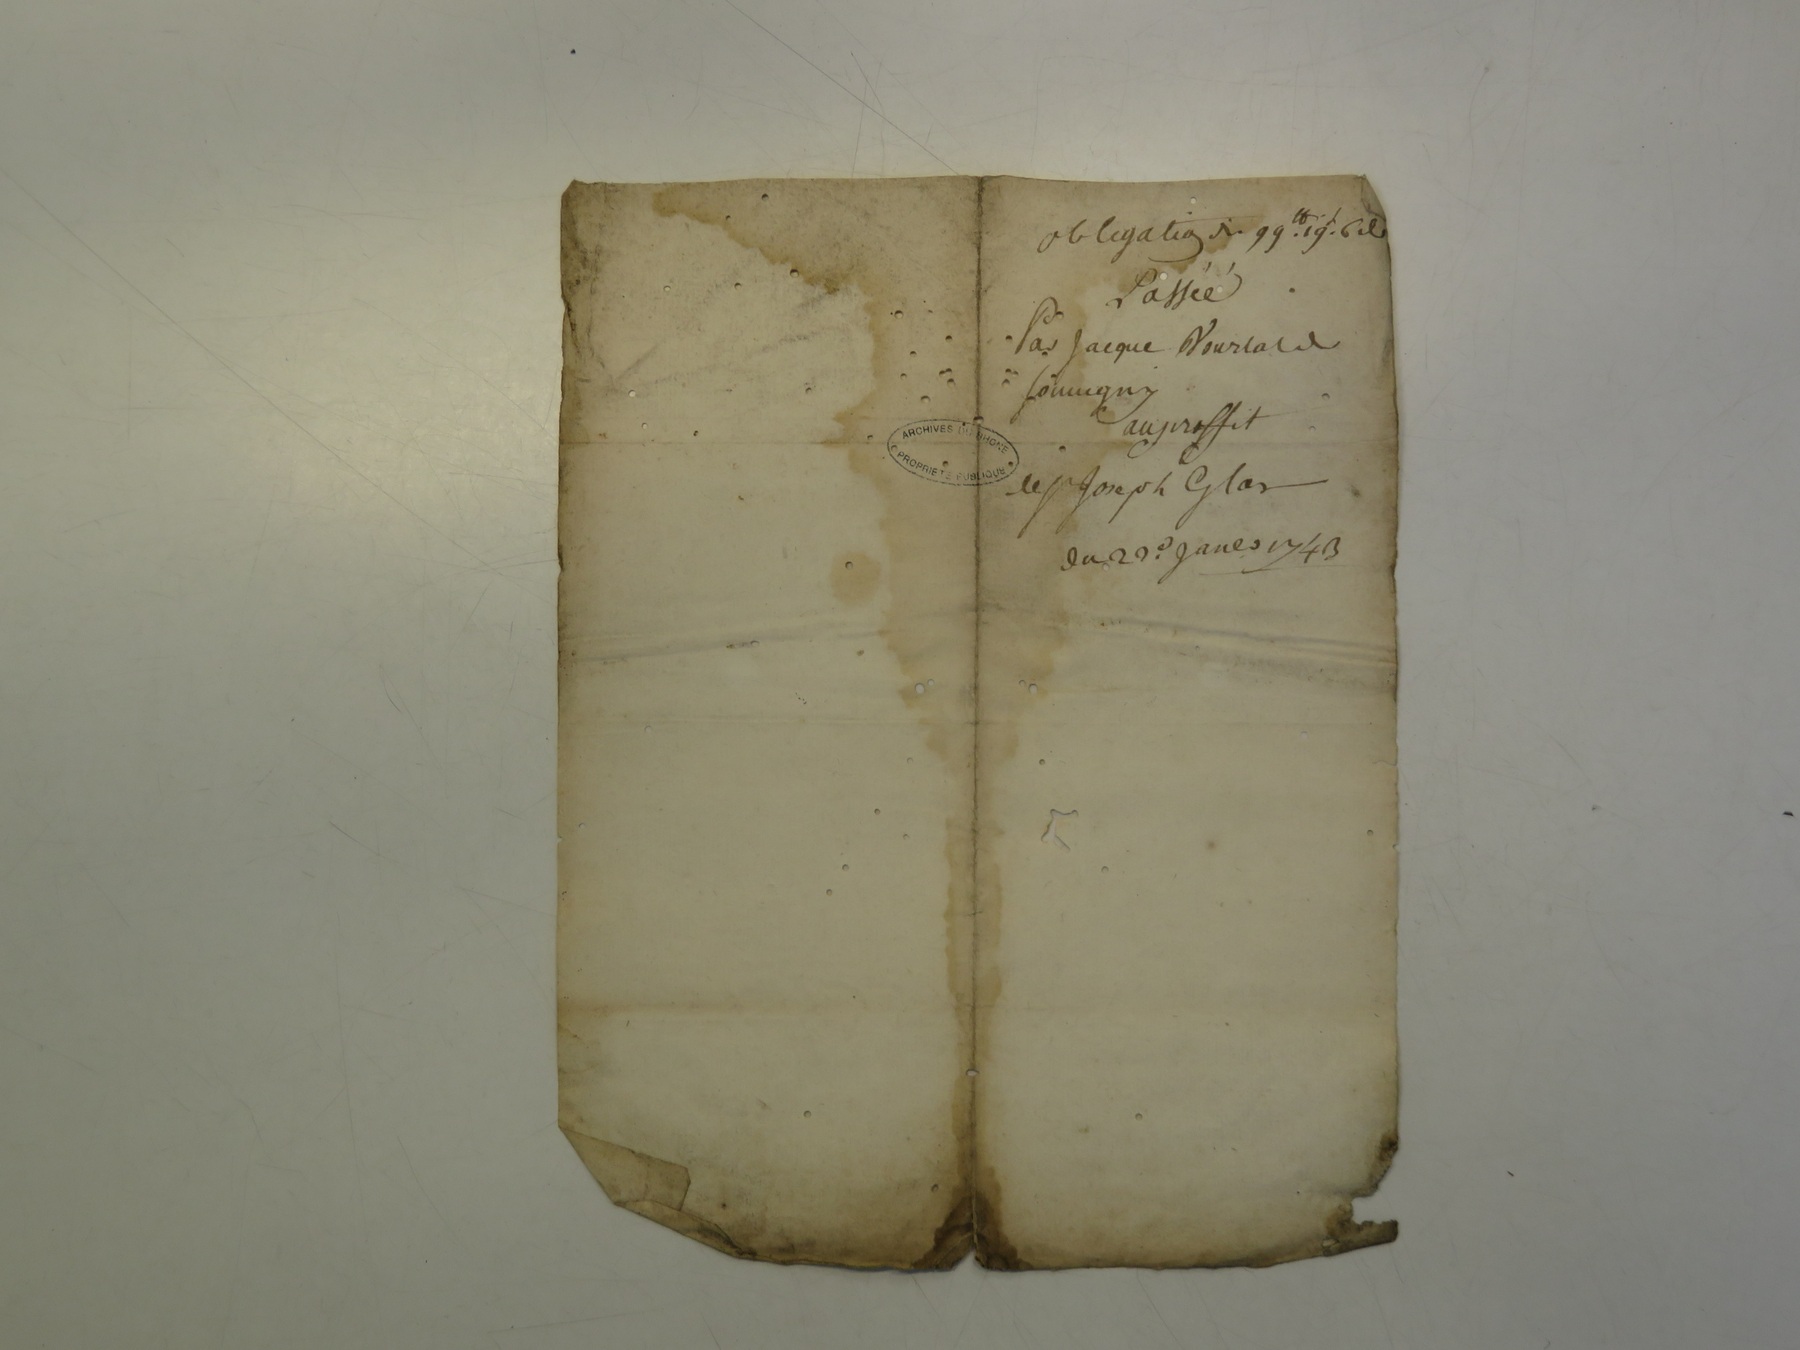 obligation de 99 ᵗᵗ. 19 ˢ. 6 d
Passéé
Par Jacque
au proffit
de Sʳ Joseph Glas
du 22ᵉ Janer 1743
ARCHIVES DU RHONE
PROPRIETE PUBLIQUE